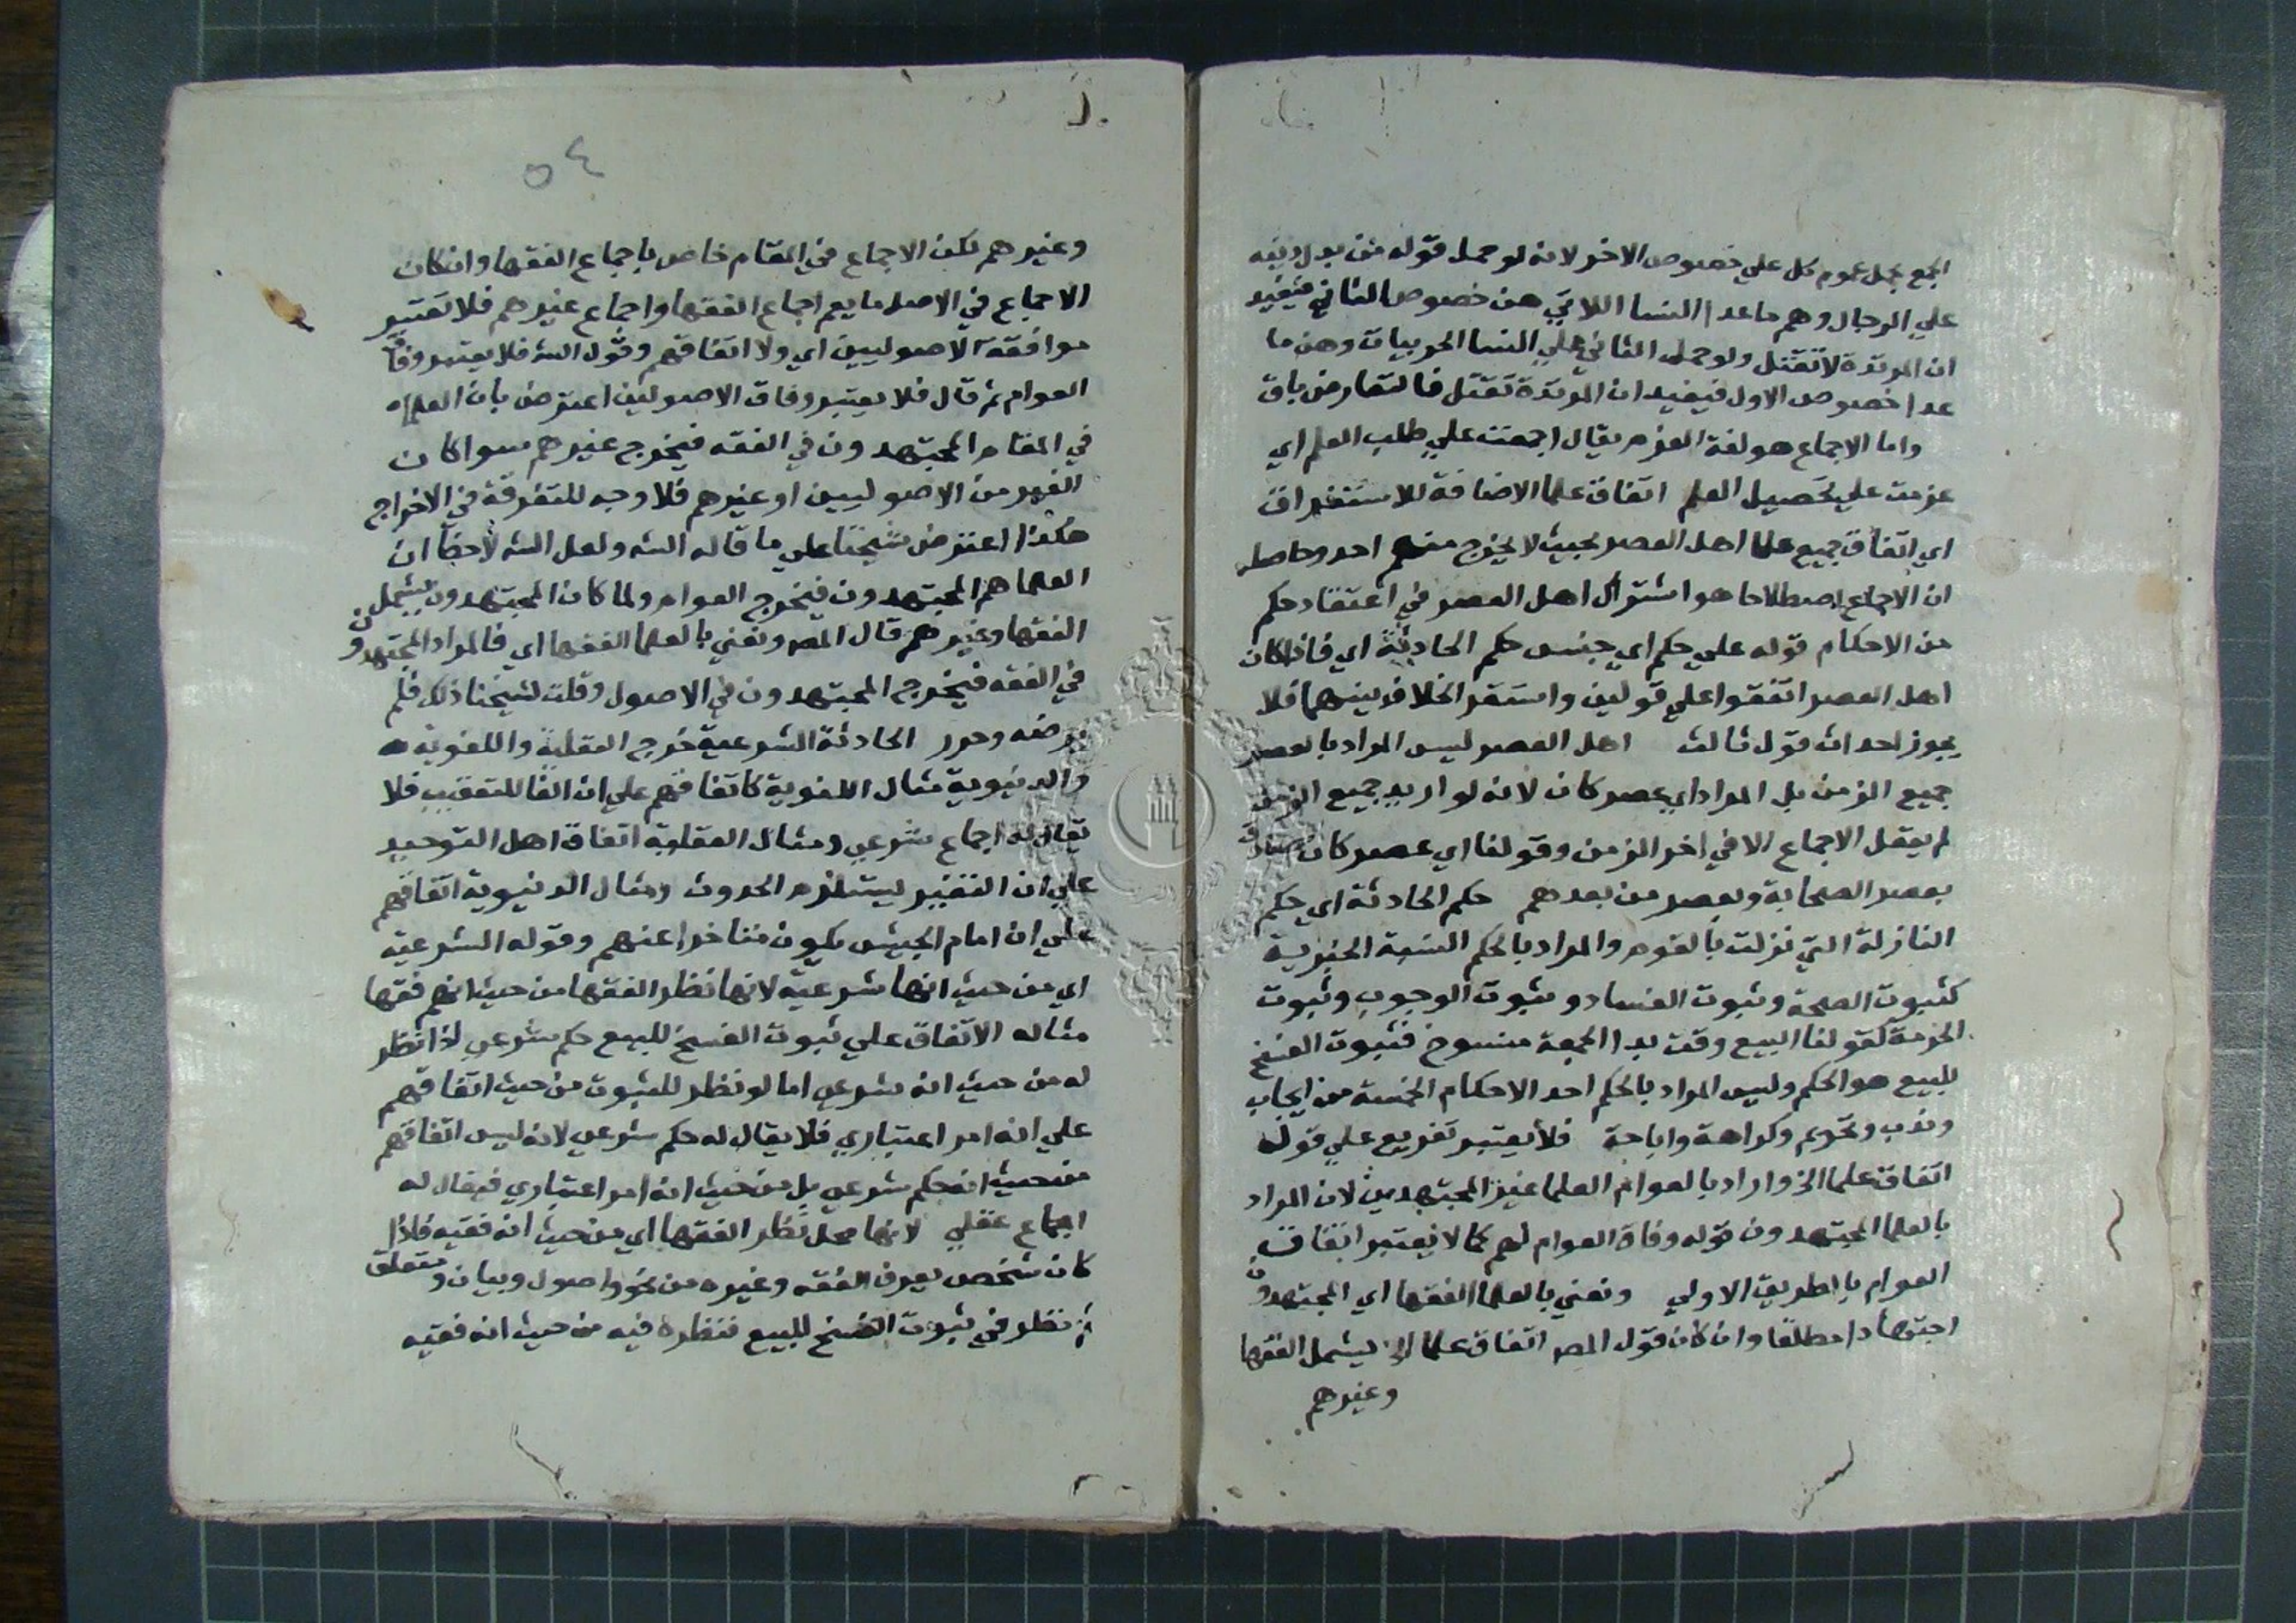 الجمع بحمل عموم كل علي خصوص الاخر لانه لو حمل قوله من بدل دينه
علي الرجال وهم ما عدا النسا اللاتي هن خصوص الثاني فيفيد
ان المرتدة لا تقتل ولو حمل الثاني علي النسا الحربيات وهن ما
عدا خصوص الاول فيفيد ان المرتدة تقتل فالتعارض باق
واما الاجماع هو لغة العزم يقال اجمعت علي طلب العلم اي
عزمت علي تحصيل العلم اتفاق علما الاضافة للاستغراق
اي اتفاق جميع علما اهل العصر بحيث لا يخرج منهم احد وحاصله
ان الاجماع اصطلاحا هو اشتراك اهل العصر في اعتقاد حكم
من الاحكام قوله علي حكم اي جنس حكم الحادثة اي فاذا كان
اهل العصر اتفقوا علي قولين واستقر الخلاف بينهما فلا
يجوز احداث قول ثالث اهل العصر ليس المراد بالعصر
جميع الزمن بل المراد اي عصر كان لانه لو اريد جميع الزمن
لم يعقل الاجماع الا في اخر الزمن وقولنا اي عصر كان
بعصر الصحابة وبعصر من بعدهم حكم الحادثة اي حكم
النازلة التي نزلت بالقوم والمراد بالحكم النسبة الخبرية
كثبوت الصحة وثبوت الفساد وثبوت الوجوب وثبوت
الحرمة كقولنا البيع وقت ندا الجمعة منسوخ فثبوت الفسخ
للبيع هو الحكم وليس المراد بالحكم احد الاحكام الخمسة من ايجاب
وندب وتحريم وكراهة واباحة فلا يعتبر تفريع علي قوله
اتفاق علما الخ واراد بالعوام العلما غير المجتهدين لان المراد
بالعلما المجتهدون قوله وفاق العوام لهم كما لا يعتبر اتفاق
العوام بالطريق الاولي ونعني بالعلما الفقها اي المجتهدون
اجتهادا مطلقا وان كان قول المصـ اتفاق علما الخ يشمل الفقها
وغيرهم
٥٤
وغيرهم لكن الاجماع في المقام خاص باجماع الفقها وان كان
الاجماع في الاصل ما يعم اجماع الفقها واجماع غيرهم فلا تعتبر
موافقة الاصوليين اي ولا اتفاقهم وقول الشـ فلا يعتبر وفاق
العوام ثم قال فلا يعتبر وفاق الاصوليين اعترض بان العلما
في المقام المجتهدون في الفقه فيخرج غيرهم سوا كان
الغير من الاصوليين او غيرهم فلا وجه للتفرقة في الاخراج
هكذا اعترض شيخنا علي ما قاله الشـ ولعل الشـ لاحظ ان
العلما هم المجتهدون فيخرج العوام ولما كان المجتهدون يشمل
الفقها وغيرهم قال المصـ ونعني بالعلما الفقها اي فالمراد المجتهدون
في الفقه فيخرج المجتهدون في الاصول وقلت لشيخنا ذلك فلم
يرضه وحرر الحادثة الشرعية خرج العقلية واللغوية
والدنيوية مثال اللغوية كاتفاقهم علي ان الفا للتعقيب فلا
يقال له اجماع شرعي ومثال العقلية اتفاق اهل التوحيد
علي ان التغير يستلزم الحدوث ومثال الدنيوية اتفاقهم
علي ان امام الجيش يكون متاخرا عنهم وقوله الشرعية
اي من حيث انها شرعية لانها نظر الفقها من حيث انهم فقها
مثاله الاتفاق علي ثبوت الفسخ للبيع حكم شرعي اذا نظر
له من حيث انه شرعي اما لو نظر للثبوت من حيث اتفاقهم
علي انه امر اعتباري فلا يقال له حكم شرعي لانه ليس اتفاقهم
من حيث انه حكم شرعي بل من حيث انه امر اعتباري فيقال له
اجماع عقلي لانها محل نظر الفقها اي من حيث انه فقيه فاذا
كان شخص يعرف الفقه وغيره من نحو واصول وبيان ومتعلق
نظر في ثبوت الفسخ للبيع فنظره فيه من حيث انه فقيه